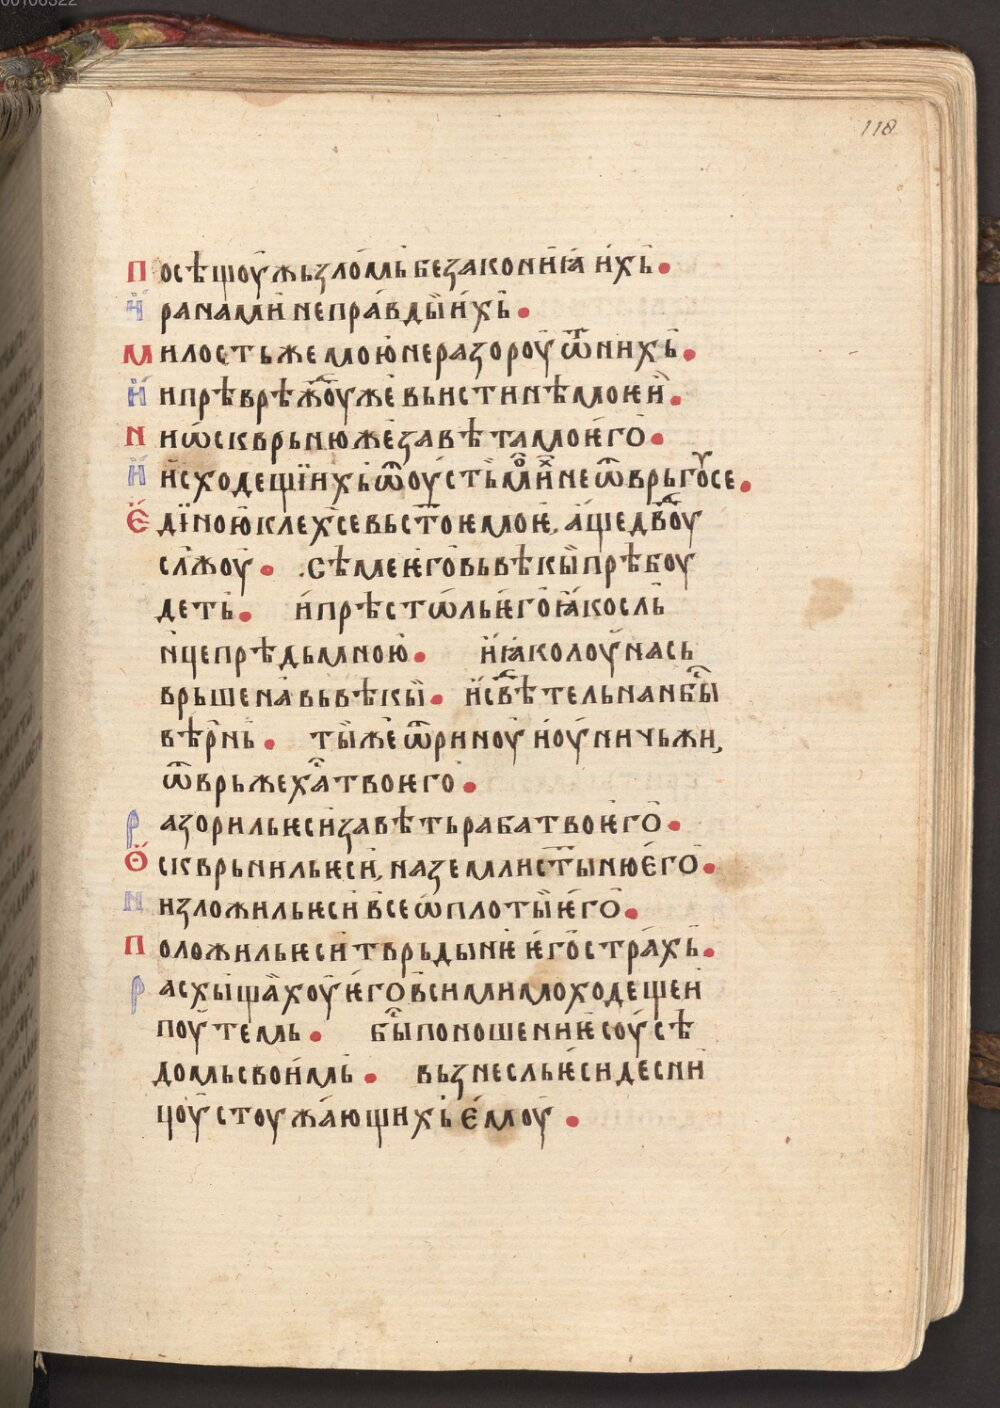 00108322
118
посѣщоу жьзломь безаконїꙗ ихь •
и ранами неправды ихь •
милость же мою не разороу ѿ нихь •
и и прѣврѣжоу же вь истинѣ моѥи •
ни ѡскврьню же завѣта моѥго •
и исходещїихь ѿ оусть моихь не ѿврьгоу се •
Ѥдїною клех се вь стомь моѥмь, аще дв҃доу
сльжоу • сѣме ѥго вь вѣкы прѣбоу
деть • и прѣстѡль ѥго ꙗко сль
нце прѣдь мною • и ꙗко лоуна сь
врьшена вь вѣкы • и свѣтель на нб҃си
вѣрнь • ты же ѿриноу и оуничьжи,
ѿврьже ха твоѥго •
разориль ѥси завѣть раба твоѥго •
Ѡскврьниль ѥси, на земли стыню ѥго •
низложиль ѥси все ѡплоты ѥго •
положиль ѥси тврьдынѥ ѥго страхь •
расхыщахоу ѥго вси мимоходещеи
поутемь • бы поношениѥ соусѣ
домь своимь • вьзнесль ѥси десни
цоу стоужающихь ѥмоу •